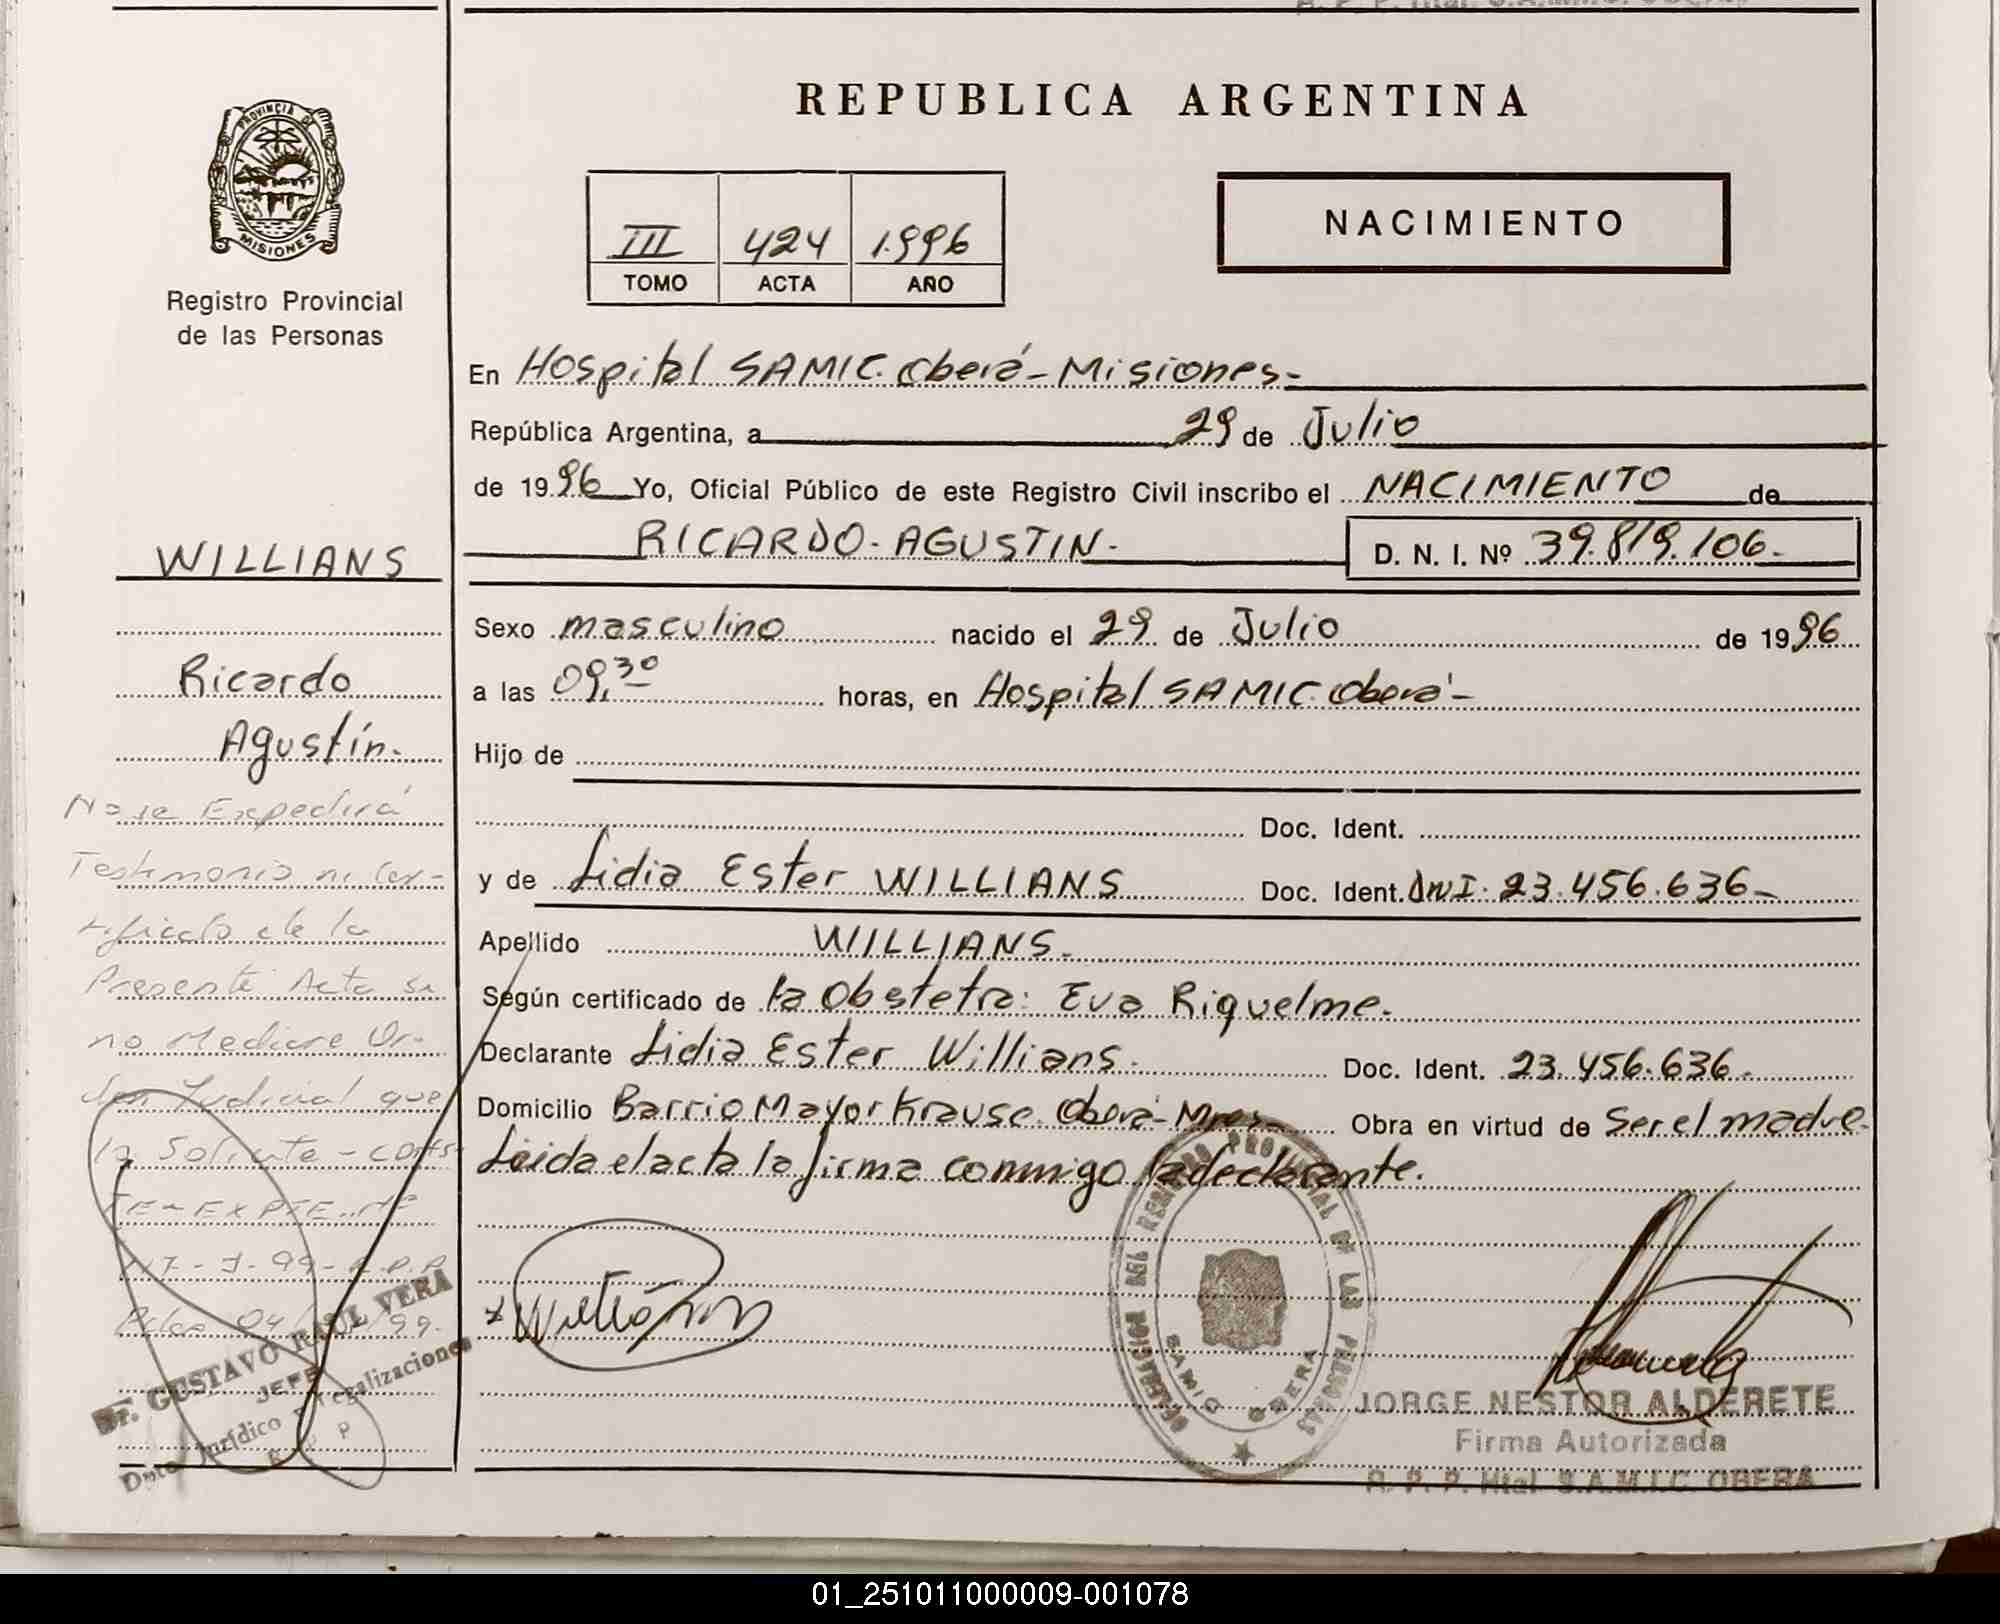 REPUBLICA ARGENTINA
PROVINCIA DE
MISIONES
Registro Provincial
de las Personas
III 424 1.996
TOMO ACTA AÑO
NACIMIENTO
En Hospital SAMIC. Oberá - Misiones -
República Argentina, a 29 de Julio
de 1996 Yo, Oficial Público de este Registro Civil inscribo el NACIMIENTO de
RICARDO - AGUSTIN. - D. N. I. Nº 39.819.106 -
WILLIANS
Ricardo
Agustín -
Sexo masculino nacido el 29 de Julio de 1996
a las 09,30 horas, en Hospital SAMIC. Oberá -
Hijo de
Doc. Ident.
y de Lidia Ester WILLIANS Doc. Ident. DNI. 23.456.636 -
Apellido WILLIANS. -
Según certificado de la Obstetra: Eva Riquelme. -
Declarante Lidia Ester Willians. - Doc. Ident. 23.456.636 -
Domicilio Barrio Mayor Krause. Oberá - Mnes - Obra en virtud de Ser el madre.
Leida el acta la firma conmigo la declarante.
No se Expedirá
Testimonio ni Cer-
tificado de la
Presente Acta si
no Mediare Or-
den Judicial que
lo Solicite -
EXPTE. Nº
99 - R.P.P.
04 99.
Dr. GUSTAVO RAUL VERA
JEFE
Dpto. Jurídico y Legalizaciones
R P P
DELEGACION DEL REGISTRO PROVINCIAL DE LAS PERSONAS
SAMIC OBERA
JORGE NESTOR ALDERETE
Firma Autorizada
R. P. P. Htal. S.A.M.I.C. OBERA
01_251011000009-001078